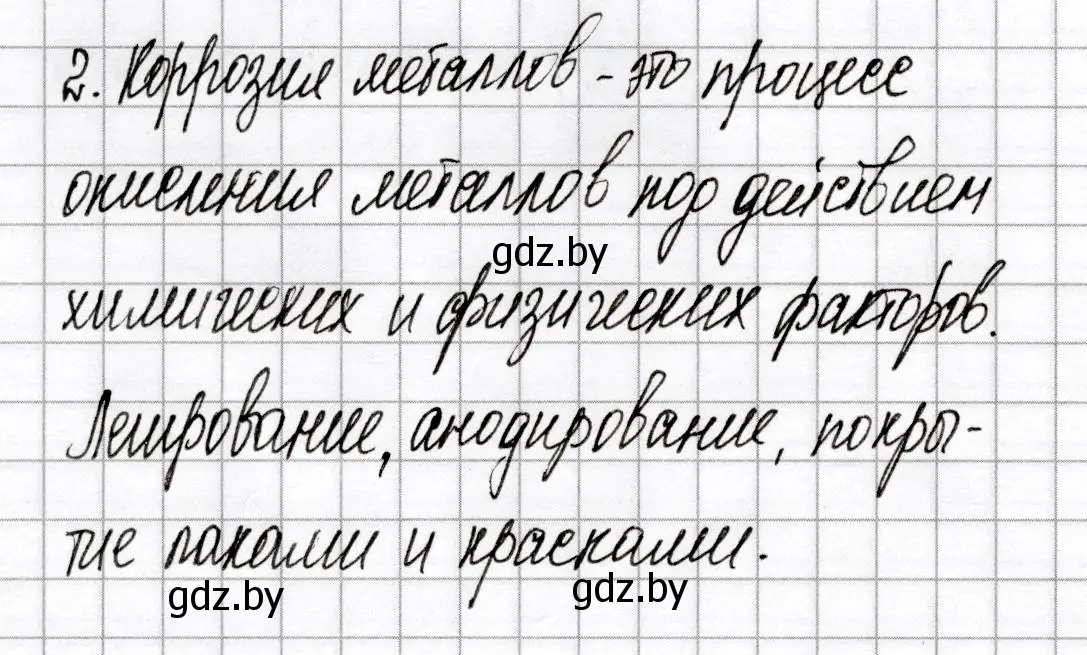 2. Коррозия металлов - это процесс
окисления металлов под действием
gdz.by
химических и физических факторов.
Легирование, анодирование, покры-
тие лаками и красками.
gdz.by gdz.by